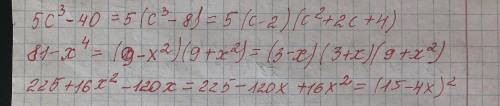 5c³-40 = 5(c³-8) = 5(c-2)(c²+2c+4)
81-x⁴ = (9-x²)(9+x²) = (3-x)(3+x)(9+x²)
225+16x²-120x = 225-120x+16x² = (15-4x)²